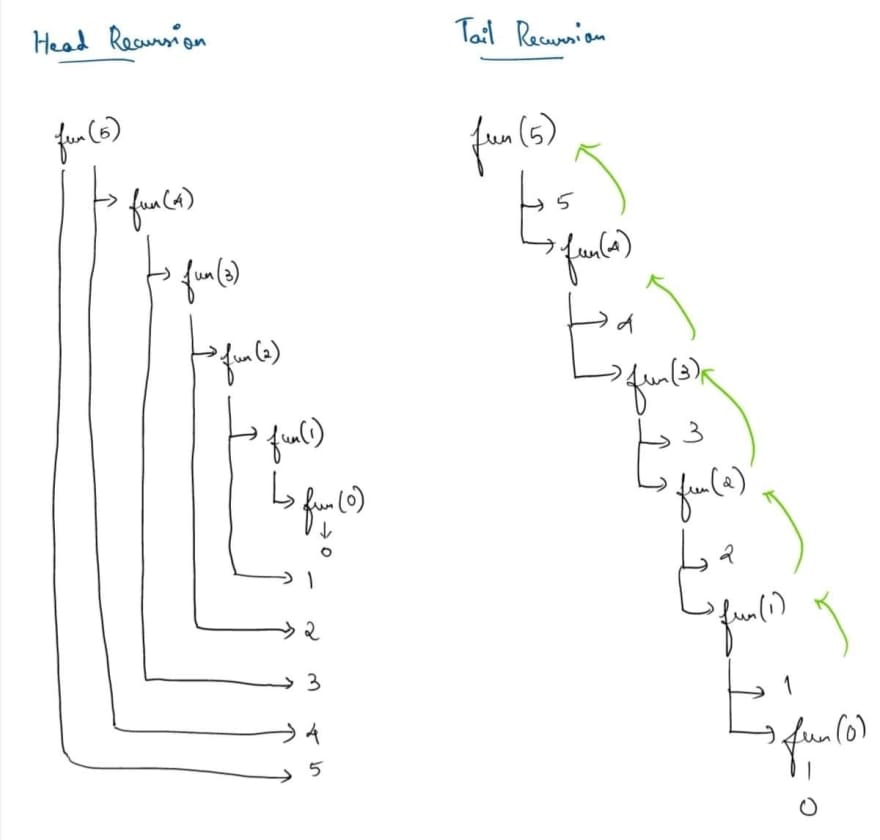 Head Recursion
fun(5)
fun(4)
fun(3)
fun(2)
fun(1)
fun(0)
0
1
2
3
4
5
Tail Recursion
fun(5)
5
fun(4)
4
fun(3)
3
fun(2)
2
fun(1)
1
fun(0)
0